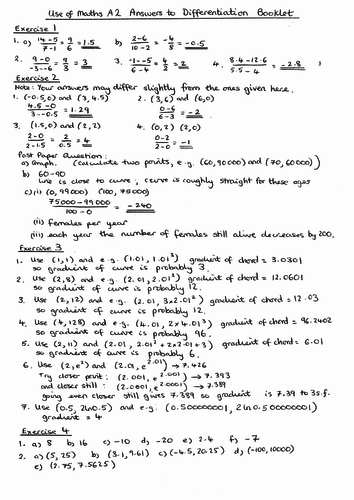 Use of Maths A2 Answers to Differentiation Booklet
Exercise 1
1. a) 14-5/7-1 = 9/6 = 1.5 b) 2-6/10-2 = -4/8 = -0.5
2. 9-0/-3--6 = 9/3 = 3 3. -1--5/6-4 = 4/2 = 2 4. 8.4-12.6/5.5-4 = -2.8
Exercise 2
Note: Your answers may differ slightly from the ones given here.
1. (-0.5,0) and (3,4.5) 2. (3,6) and (6,0)
4.5-0/3--0.5 = 1.29 0-6/6-3 = -2
3. (1.5,0) and (2,2) 4. (0,2) (2,0)
2-0/2-1.5 = 2/0.5 = 4 0-2/2-0 = -1
Past Paper Question:
a) Graph. (calculate two points, e.g. (60,90000) and (70,60000))
b) 60-90
line is close to curve; curve is roughly straight for these ages
c)(i) (0, 99000) (100, 75000)
75000-99000/100-0 = -240
(ii) females per year
(iii) each year the number of females still alive decreases by 200.
Exercise 3
1. Use (1,1) and e.g. (1.01, 1.01³) gradient of chord = 3.0301
so gradient of curve is probably 3.
2. Use (2,8) and e.g. (2.01, 2.01³) gradient of chord = 12.0601
so gradient of curve is probably 12.
3. Use (2,12) and e.g. (2.01, 3×2.01²) gradient of chord = 12.03
so gradient of curve is probably 12.
4. Use (4,128) and e.g. (4.01, 2×4.01³) gradient of chord = 96.2402
so gradient of curve is probably 96.
5. Use (2,11) and (2.01, 2.01²+2×2.01+3) gradient of chord = 6.01
so gradient of curve is probably 6.
6. Use (2,e²) and (2.01, e^2.01) → 7.426
Try closer point: (2.001, e^2.001) → 7.393
and closer still: (2.0001, e^2.0001) → 7.389
going even closer still gives 7.389 so gradient is 7.39 to 3s.f.
7. Use (0.5, 2ln0.5) and e.g. (0.50000001, 2ln0.50000001)
gradient = 4
Exercise 4
1. a) 8 b) 16 c) -10 d) -20 e) 2.4 f) -7
2. a) (5,25) b) (3.1, 9.61) c) (-4.5, 20.25) d) (-100,10000)
e) (2.75, 7.5625)